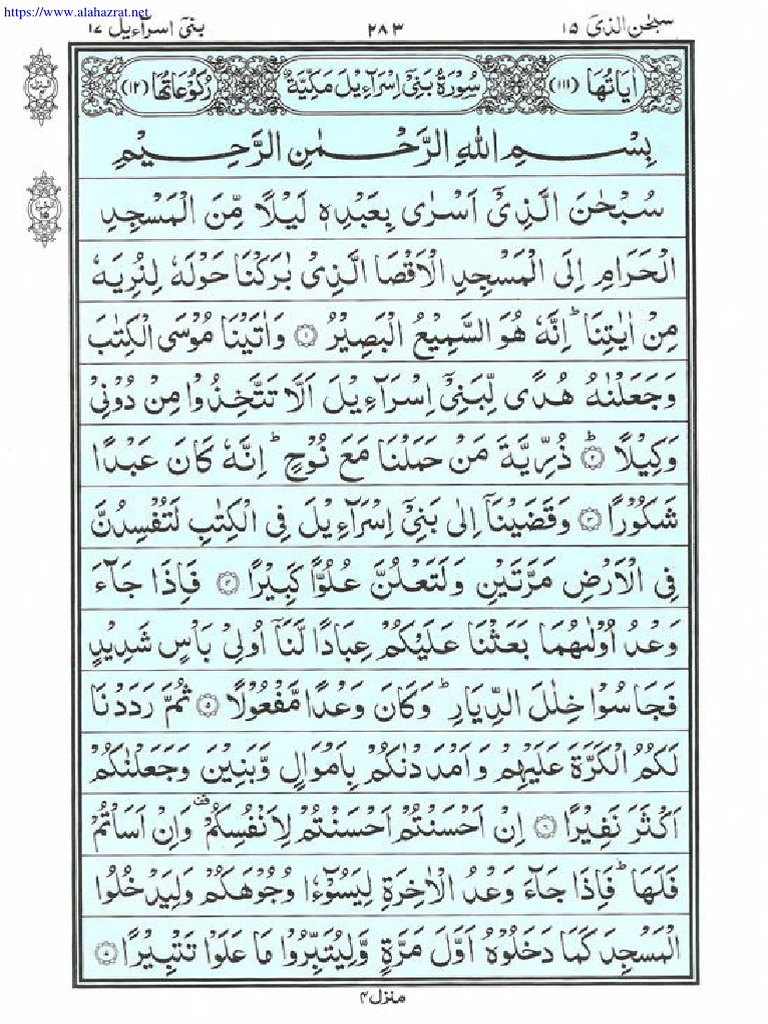 https://www.alahazrat.net
سبحٰن الذی ۱۵ ۲۸۳ بنی اسرآءیل ۱۷
اٰیَاتُهَا (۱۱۱) سُوْرَةُ بَنِیْۤ اِسْرَآءِیْلَ مَكِّیَّةٌ رُكُوْعَاتُهَا (۱۲)
بِسْمِ اللهِ الرَّحْمٰنِ الرَّحِیْمِ
سُبْحٰنَ الَّذِیْۤ اَسْرٰی بِعَبْدِهٖ لَیْلًا مِّنَ الْمَسْجِدِ
الْحَرَامِ اِلَی الْمَسْجِدِ الْاَقْصَا الَّذِیْ بٰرَكْنَا حَوْلَهٗ لِنُرِیَهٗ
مِنْ اٰیٰتِنَا ؕ اِنَّهٗ هُوَ السَّمِیْعُ الْبَصِیْرُ ۱ وَاٰتَیْنَا مُوْسَی الْكِتٰبَ
وَجَعَلْنٰهُ هُدًی لِّبَنِیْۤ اِسْرَآءِیْلَ اَلَّا تَتَّخِذُوْا مِنْ دُوْنِیْ
وَكِیْلًا ؕ۲ ذُرِّیَّةَ مَنْ حَمَلْنَا مَعَ نُوْحٍ ؕ اِنَّهٗ كَانَ عَبْدًا
شَكُوْرًا ۳ وَقَضَیْنَاۤ اِلٰی بَنِیْۤ اِسْرَآءِیْلَ فِی الْكِتٰبِ لَتُفْسِدُنَّ
فِی الْاَرْضِ مَرَّتَیْنِ وَلَتَعْلُنَّ عُلُوًّا كَبِیْرًا ۴ فَاِذَا جَآءَ
وَعْدُ اُوْلٰىهُمَا بَعَثْنَا عَلَیْكُمْ عِبَادًا لَّنَاۤ اُولِیْ بَاْسٍ شَدِیْدٍ
فَجَاسُوْا خِلٰلَ الدِّیَارِ ؕ وَكَانَ وَعْدًا مَّفْعُوْلًا ۵ ثُمَّ رَدَدْنَا
لَكُمُ الْكَرَّةَ عَلَیْهِمْ وَاَمْدَدْنٰكُمْ بِاَمْوَالٍ وَّبَنِیْنَ وَجَعَلْنٰكُمْ
اَكْثَرَ نَفِیْرًا ۶ اِنْ اَحْسَنْتُمْ اَحْسَنْتُمْ لِاَنْفُسِكُمْ وَاِنْ اَسَاْتُمْ
فَلَهَا ؕ فَاِذَا جَآءَ وَعْدُ الْاٰخِرَةِ لِیَسُوْٓءٗا وُجُوْهَكُمْ وَلِیَدْخُلُوا
الْمَسْجِدَ كَمَا دَخَلُوْهُ اَوَّلَ مَرَّةٍ وَّلِیُتَبِّرُوْا مَا عَلَوْا تَتْبِیْرًا ۷
منزل ۴